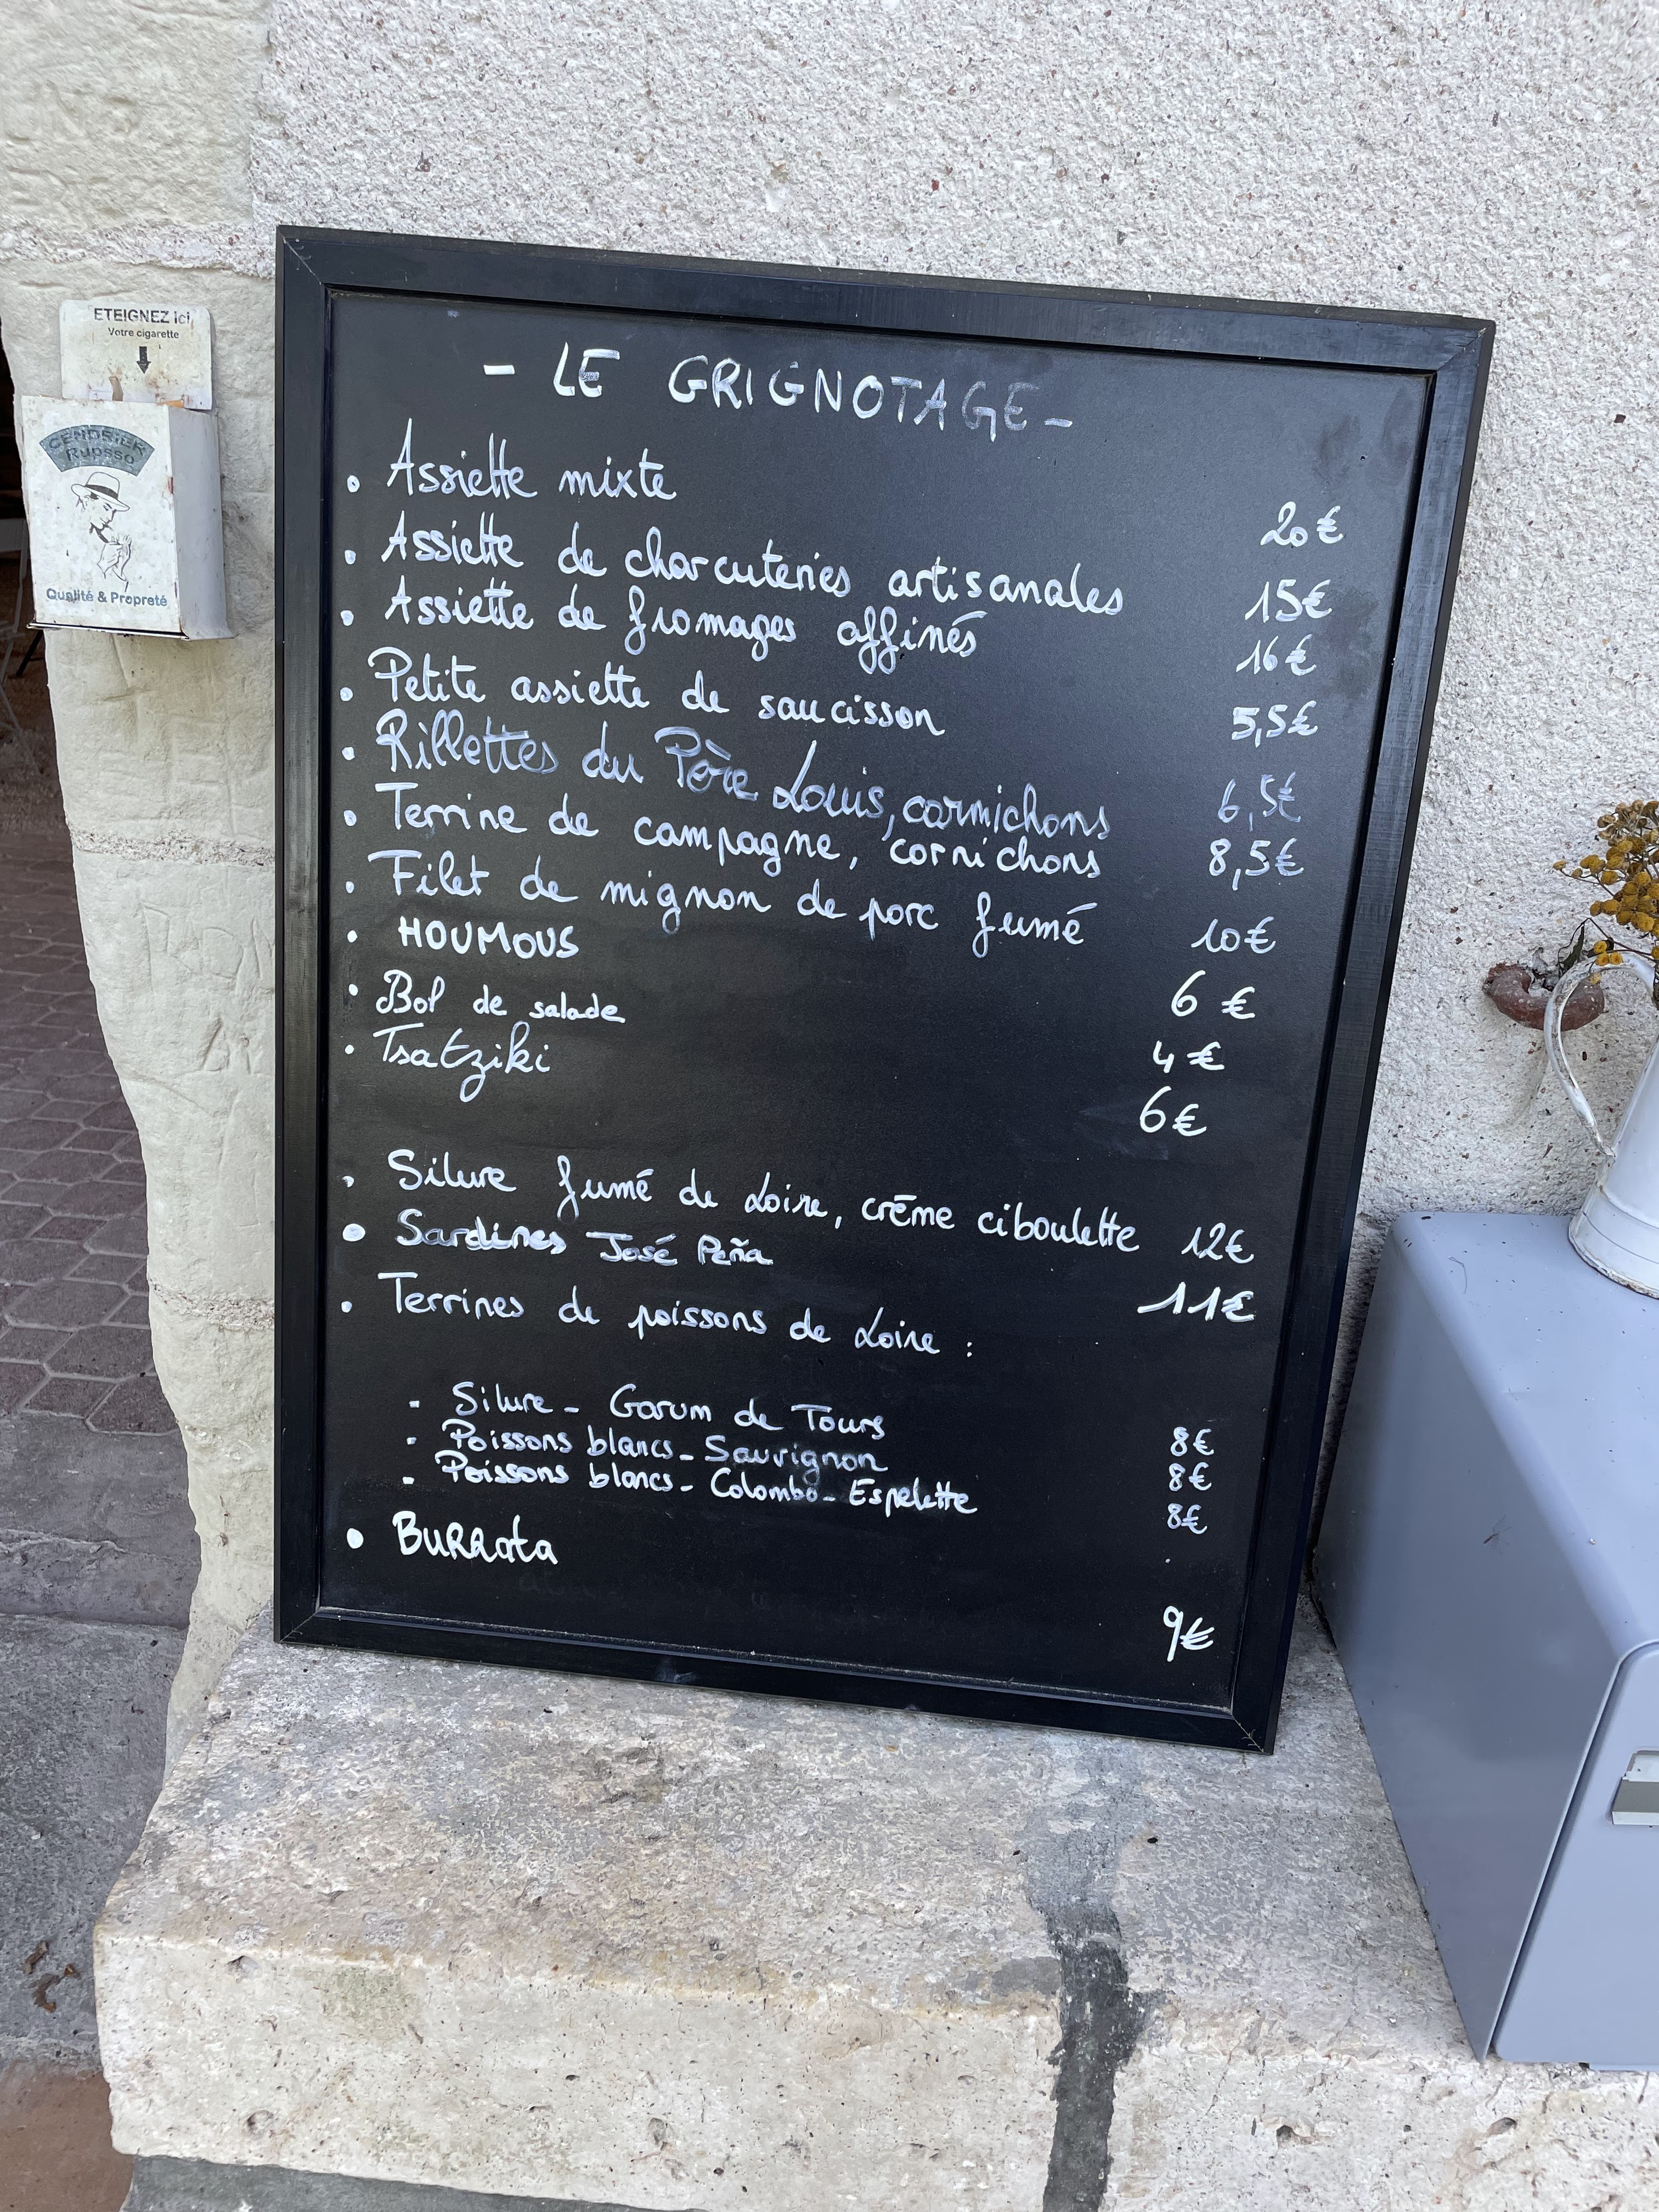 ETEIGNEZ ici
Votre cigarette
CENDRIER
Ruosso
Qualité & Propreté
- LE GRIGNOTAGE -
• Assiette mixte 20€
• Assiette de charcuteries artisanales 15€
• Assiette de fromages affinés 16€
• Petite assiette de saucisson 5,5€
• Rillettes du Père Louis, cornichons 6,5€
• Terrine de campagne, cornichons 8,5€
• Filet de mignon de porc fumé 10€
• HOUMOUS 6 €
• Bol de salade 4 €
• Tsatziki 6€
• Silure fumé de Loire, crème ciboulette 12€
• Sardines José Peña 11€
• Terrines de poissons de Loire :
- Silure - Garum de Tours 8€
- Poissons blancs - Sauvignon 8€
- Poissons blancs - Colombo - Espelette 8€
• BURRata 9€